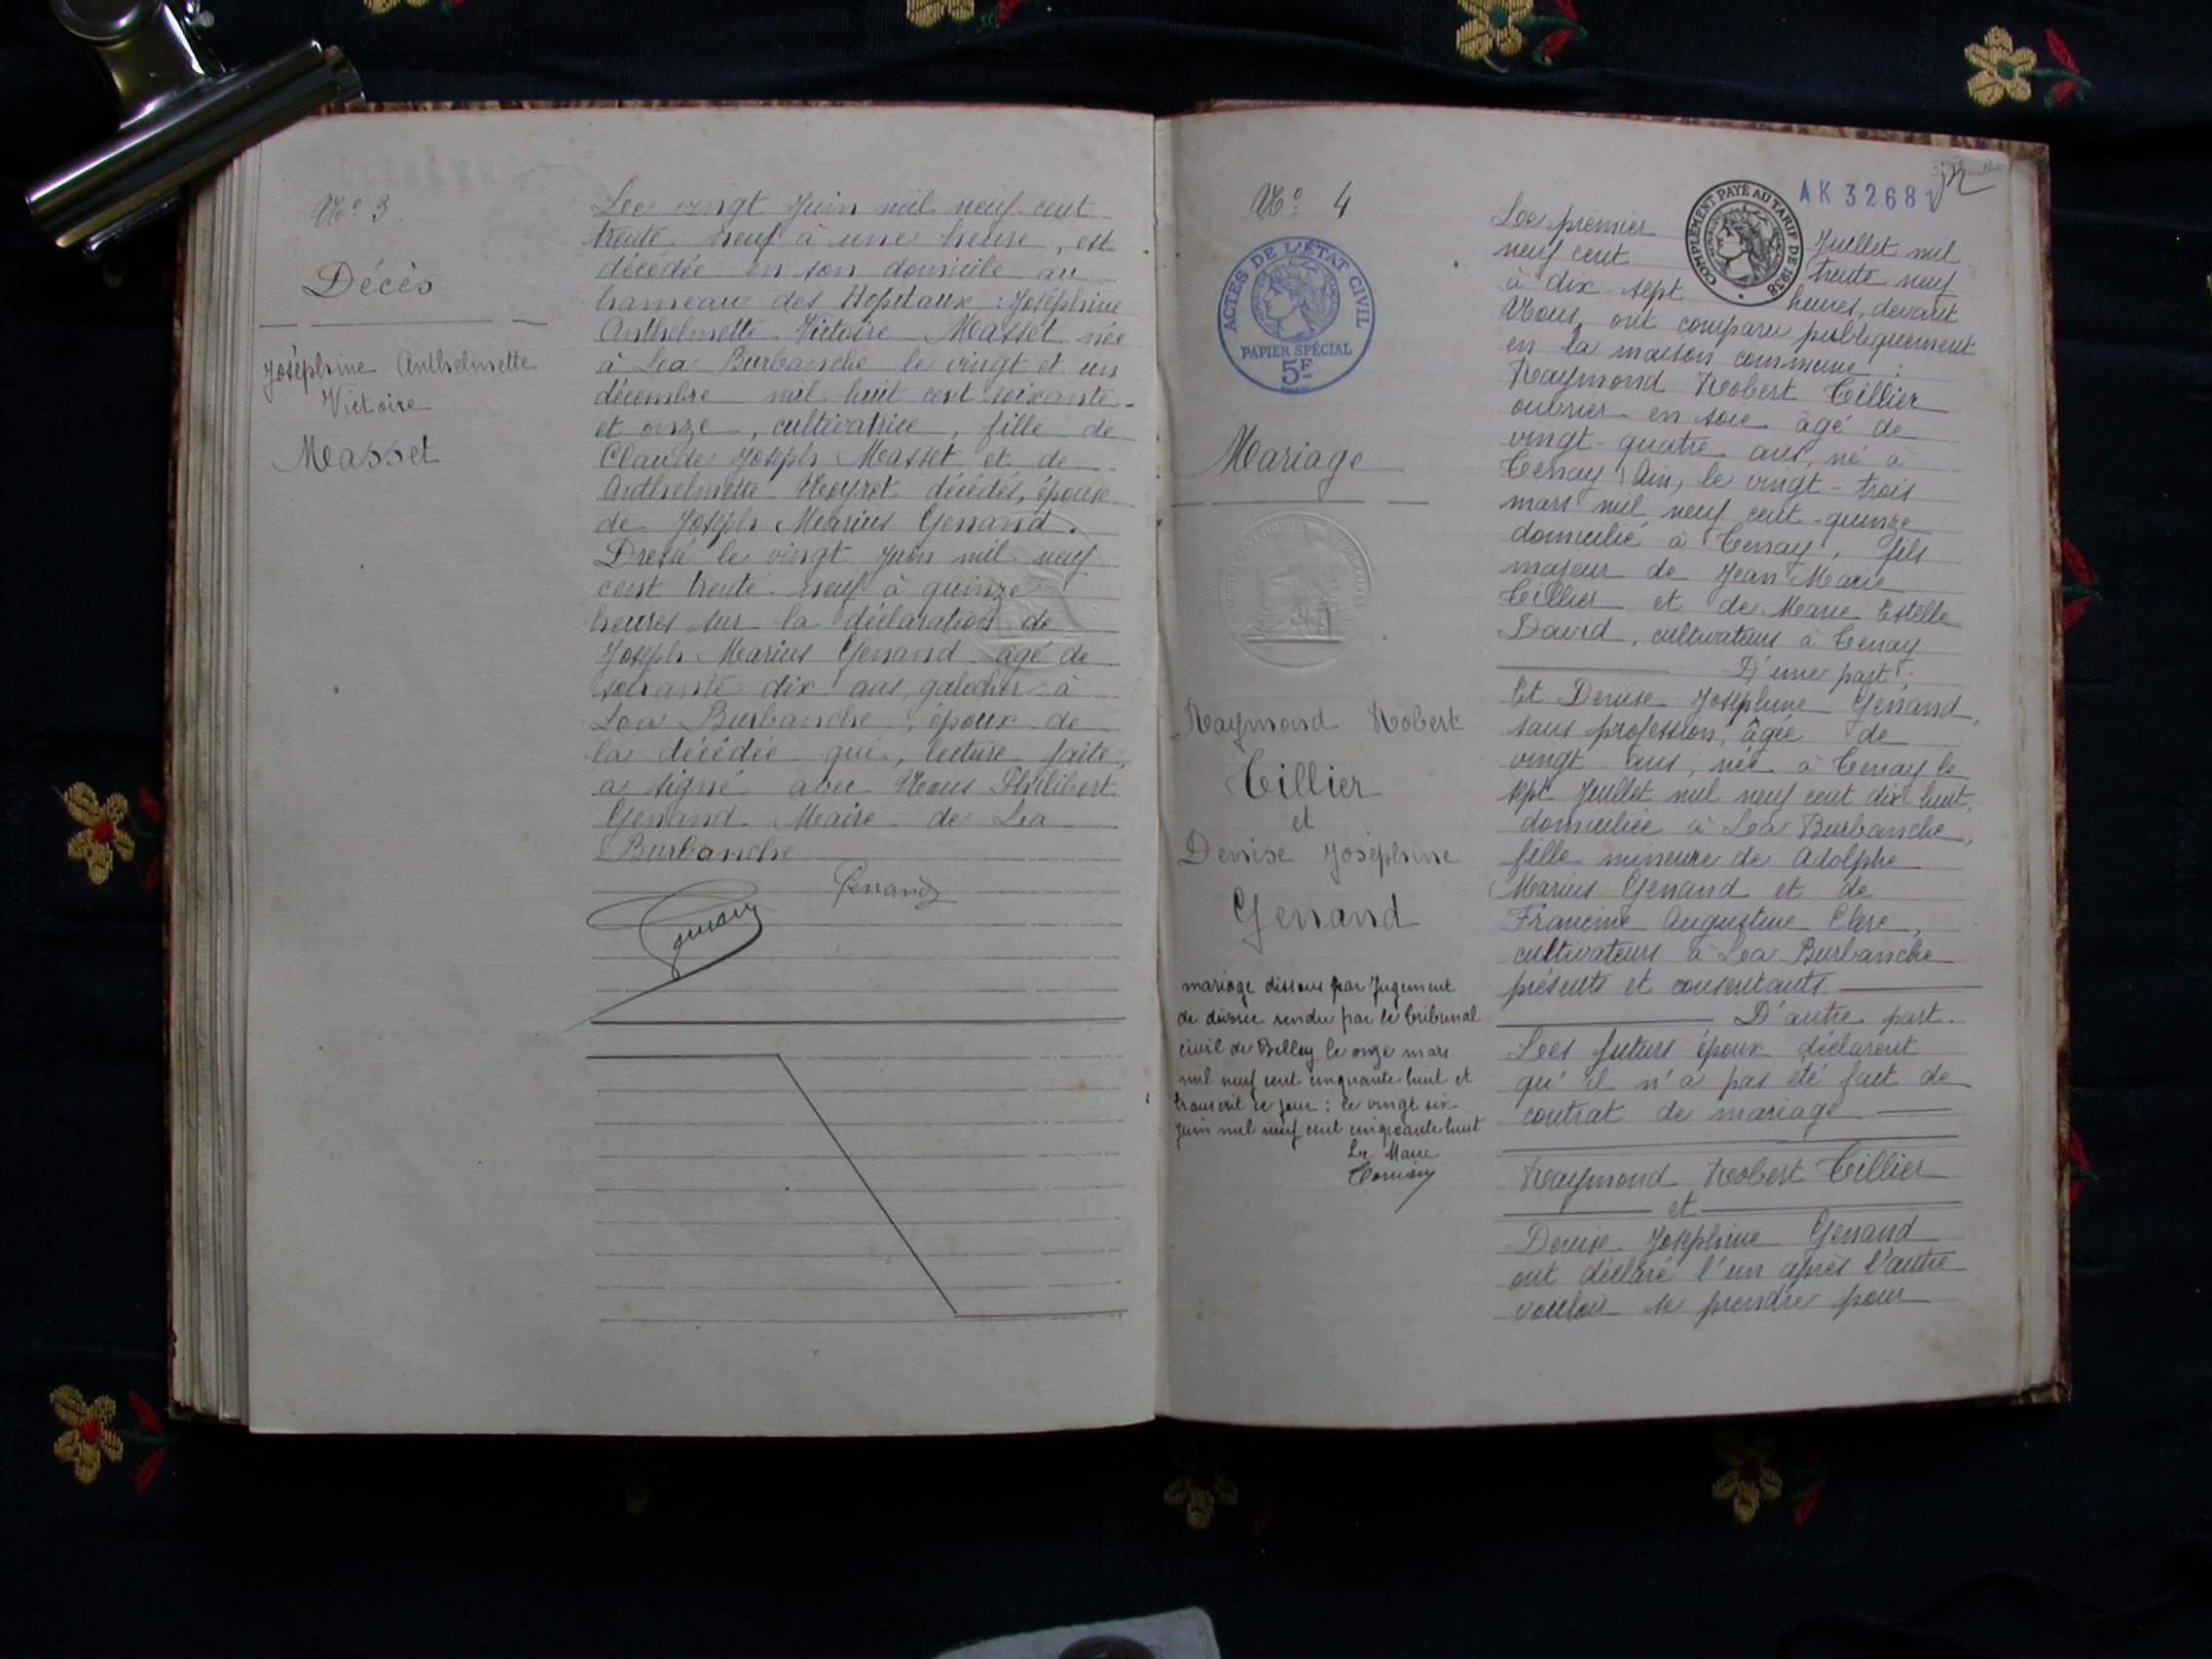 N° 3
Décès
Joséphine Anthelmette
Victoire
Masset
Le vingt Juin mil neuf cent
trente neuf à une heure, est
décédée en son domicile au
hameau des Hopitaux : Joséphine
Anthelmette Victoire Masset née
à La Burbanche le vingt et un
décembre mil huit cent soixante
et onze, cultivatrice, fille de
Claude Joseph Masset et de
Anthelmette décédés, épouse
de Joseph Marius Genand.
Dressé le vingt Juin mil neuf
cent trente neuf à quinze
heures sur la déclaration de
Joseph Marius Genand âgé de
soixante dix ans, galochier à
La Burbanche, époux de
la décédée qui, lecture faite,
a signé avec Nous Philibert
Genand Maire de La
Burbanche
Genand
N° 4
ACTES DE L'ÉTAT CIVIL
PAPIER SPÉCIAL
5F
Mariage
Raymond Robert
Tillier
et
Denise Joséphine
Genand
mariage dissous par Jugement
de divorce rendu par le tribunal
civil de Belley le onze mars
mil neuf cent cinquante-huit et
transcrit ce jour : le vingt six
Juin mil neuf cent cinquante huit
Le Maire
COMPLÉMENT PAYÉ AU TARIF DE 1938
AK 32681
Le premier Juillet mil
neuf cent trente neuf
à dix sept heures, devant
Nous, ont comparu publiquement
en la maison commune :
Raymond Robert Tillier
ouvrier en soie âgé de
vingt-quatre ans, né à
Tenay (Ain, le vingt-trois
mars mil neuf cent-quinze
domicilié à Tenay, fils
majeur de Jean Marie
Tillier et de Marie Estelle
David, cultivateurs à Tenay
D'une part ;
Et Denise Joséphine Genand,
sans profession, âgée de
vingt ans, née à Tenay le
sept Juillet mil neuf cent dix huit,
domiciliée à La Burbanche,
fille mineure de Adolphe
Marius Genand et de
Francine Augustine Clerc,
cultivateurs à La Burbanche
présents et consentants.
D'autre part.
Les futurs époux déclarent
qu'il n'a pas été fait de
contrat de mariage
Raymond Robert Tillier
et
Denise Joséphine Genand
ont déclaré l'un après l'autre
vouloir se prendre pour